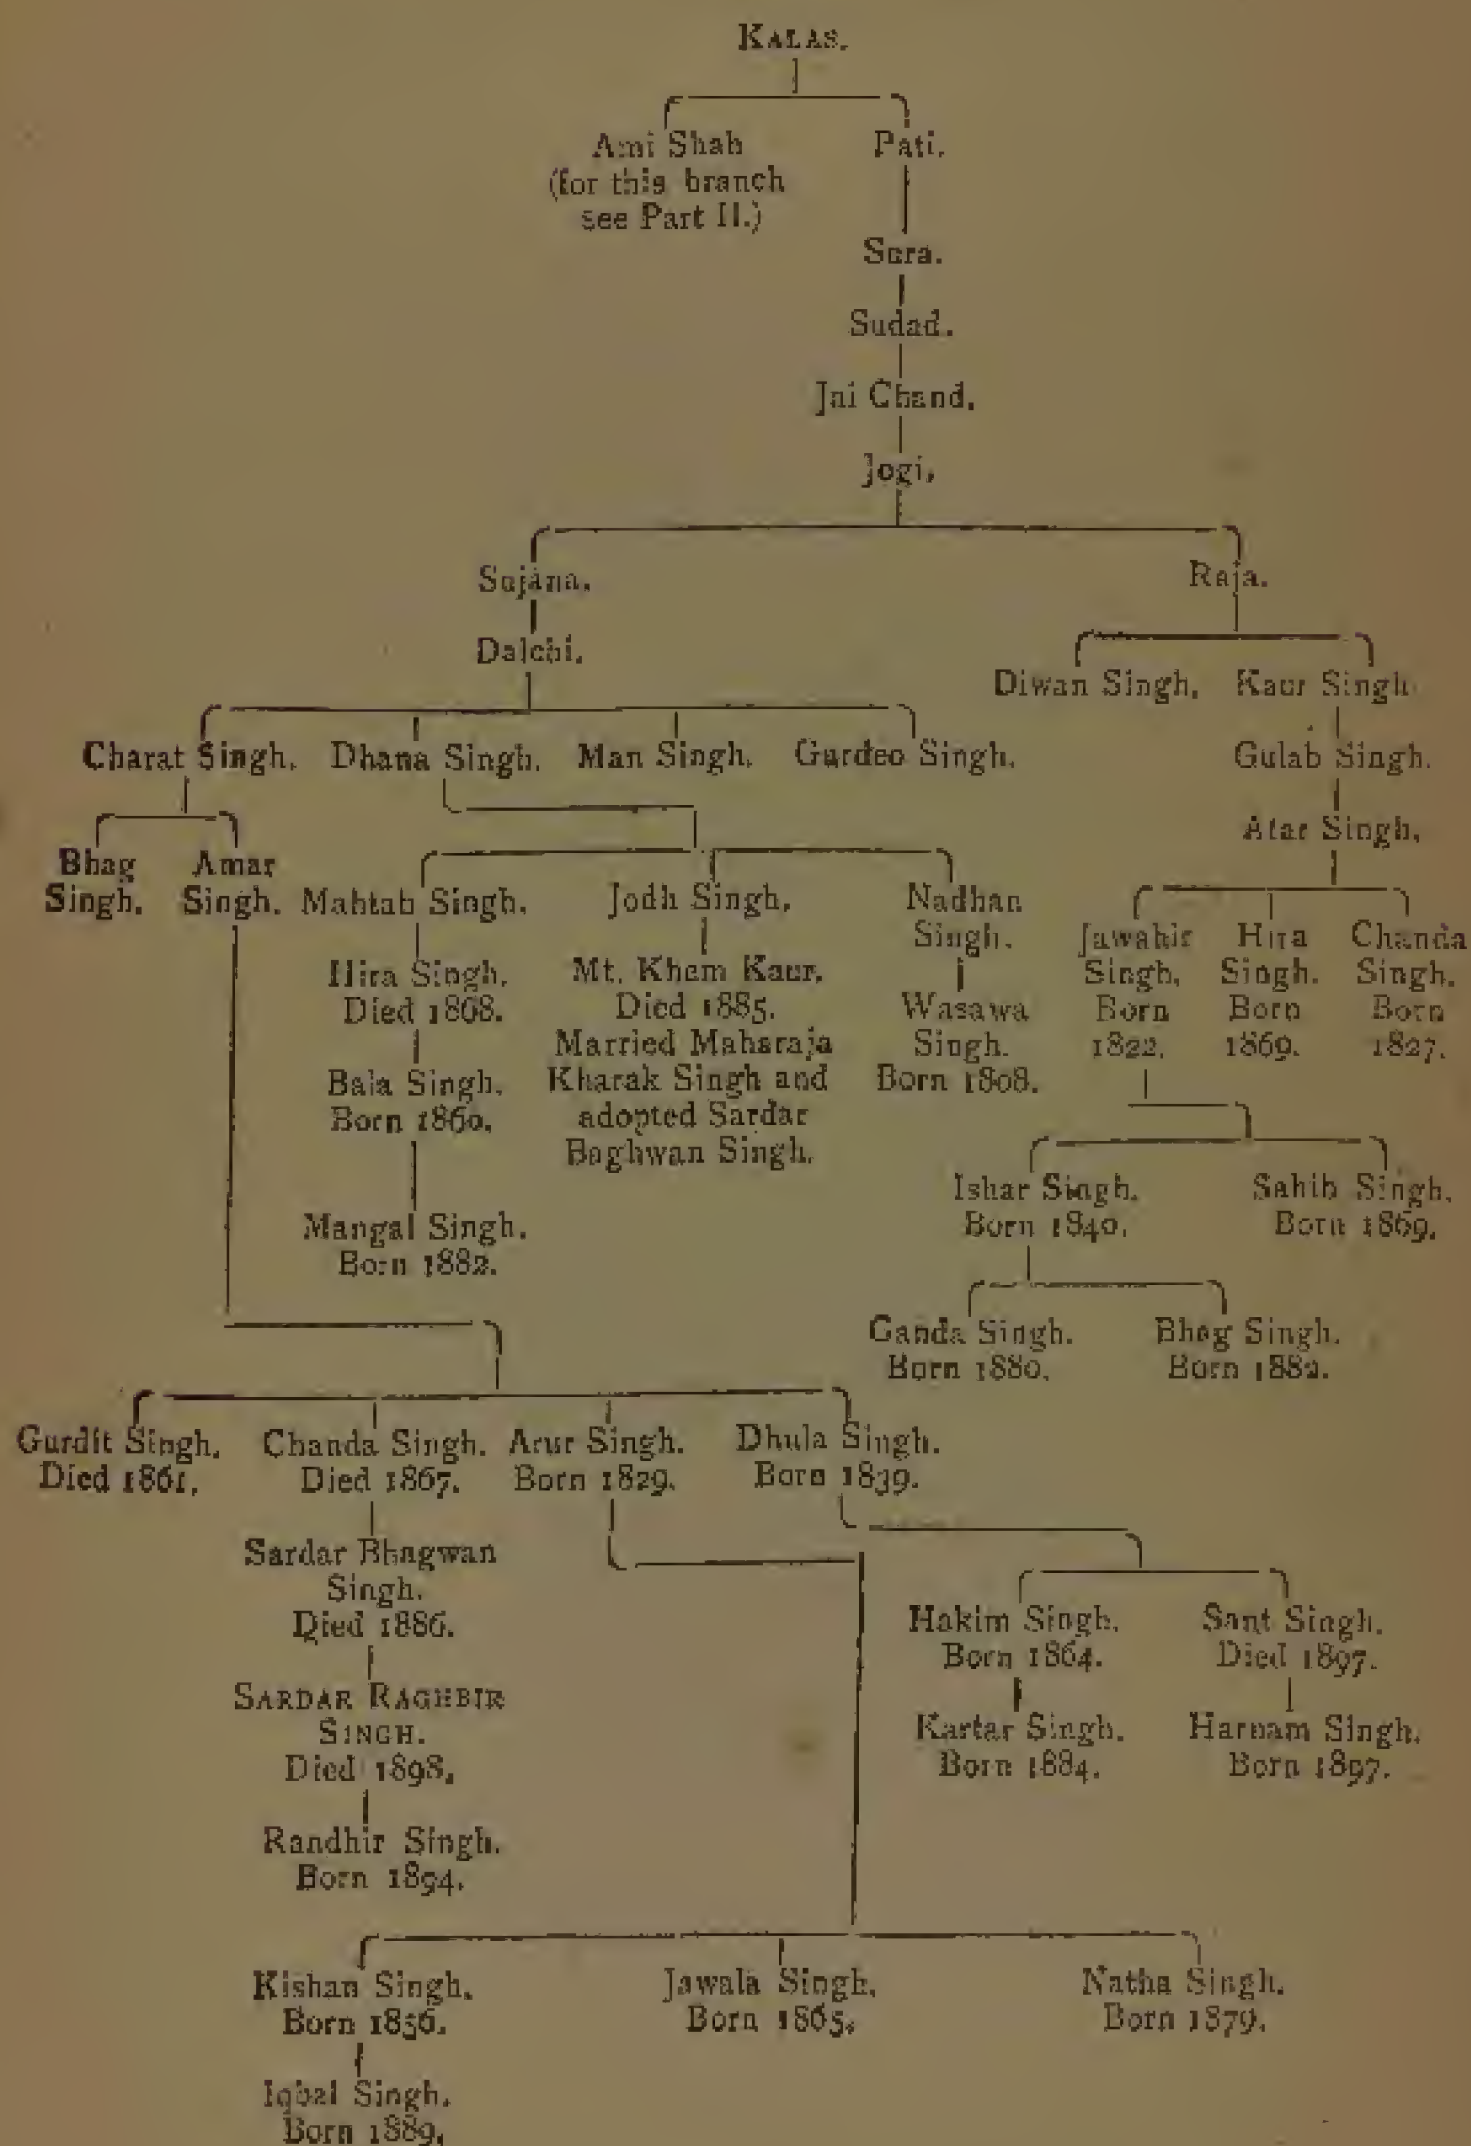 KALAS.
Ami Shah
(for this branch
see Part II.)
Pati.
Sura.
Sudad.
Jai Chand.
Jogi.
Sujana.
Raja.
Dalchi.
Diwan Singh.
Kaur Singh
Charat Singh.
Dhana Singh.
Man Singh.
Gurdeo Singh.
Gulab Singh.
Atar Singh.
Bhag
Singh.
Amar
Singh.
Mahtab Singh.
Jodh Singh.
Nadhan
Singh.
Jawahir
Singh.
Born
1822.
Hira
Singh.
Born
1869.
Chanda
Singh.
Born
1827.
Hira Singh.
Died 1868.
Mt. Khem Kaur.
Died 1885.
Married Maharaja
Kharak Singh and
adopted Sardar
Baghwan Singh.
Wasawa
Singh.
Born 1808.
Bala Singh.
Born 1860.
Mangal Singh.
Born 1882.
Ishar Singh.
Born 1840.
Sahib Singh.
Born 1869.
Ganda Singh.
Born 1880.
Bhag Singh.
Born 1882.
Gurdit Singh.
Died 1861.
Chanda Singh.
Died 1867.
Arur Singh.
Born 1829.
Dhula Singh.
Born 1839.
Sardar Bhagwan
Singh.
Died 1886.
Hakim Singh.
Born 1864.
Sant Singh.
Died 1897.
SARDAR RAGHBIR
SINGH.
Died 1898.
Kartar Singh.
Born 1884.
Harnam Singh.
Born 1897.
Randhir Singh.
Born 1894.
Kishan Singh.
Born 1856.
Jawala Singh.
Born 1865.
Natha Singh.
Born 1879.
Iqbal Singh.
Born 1889.